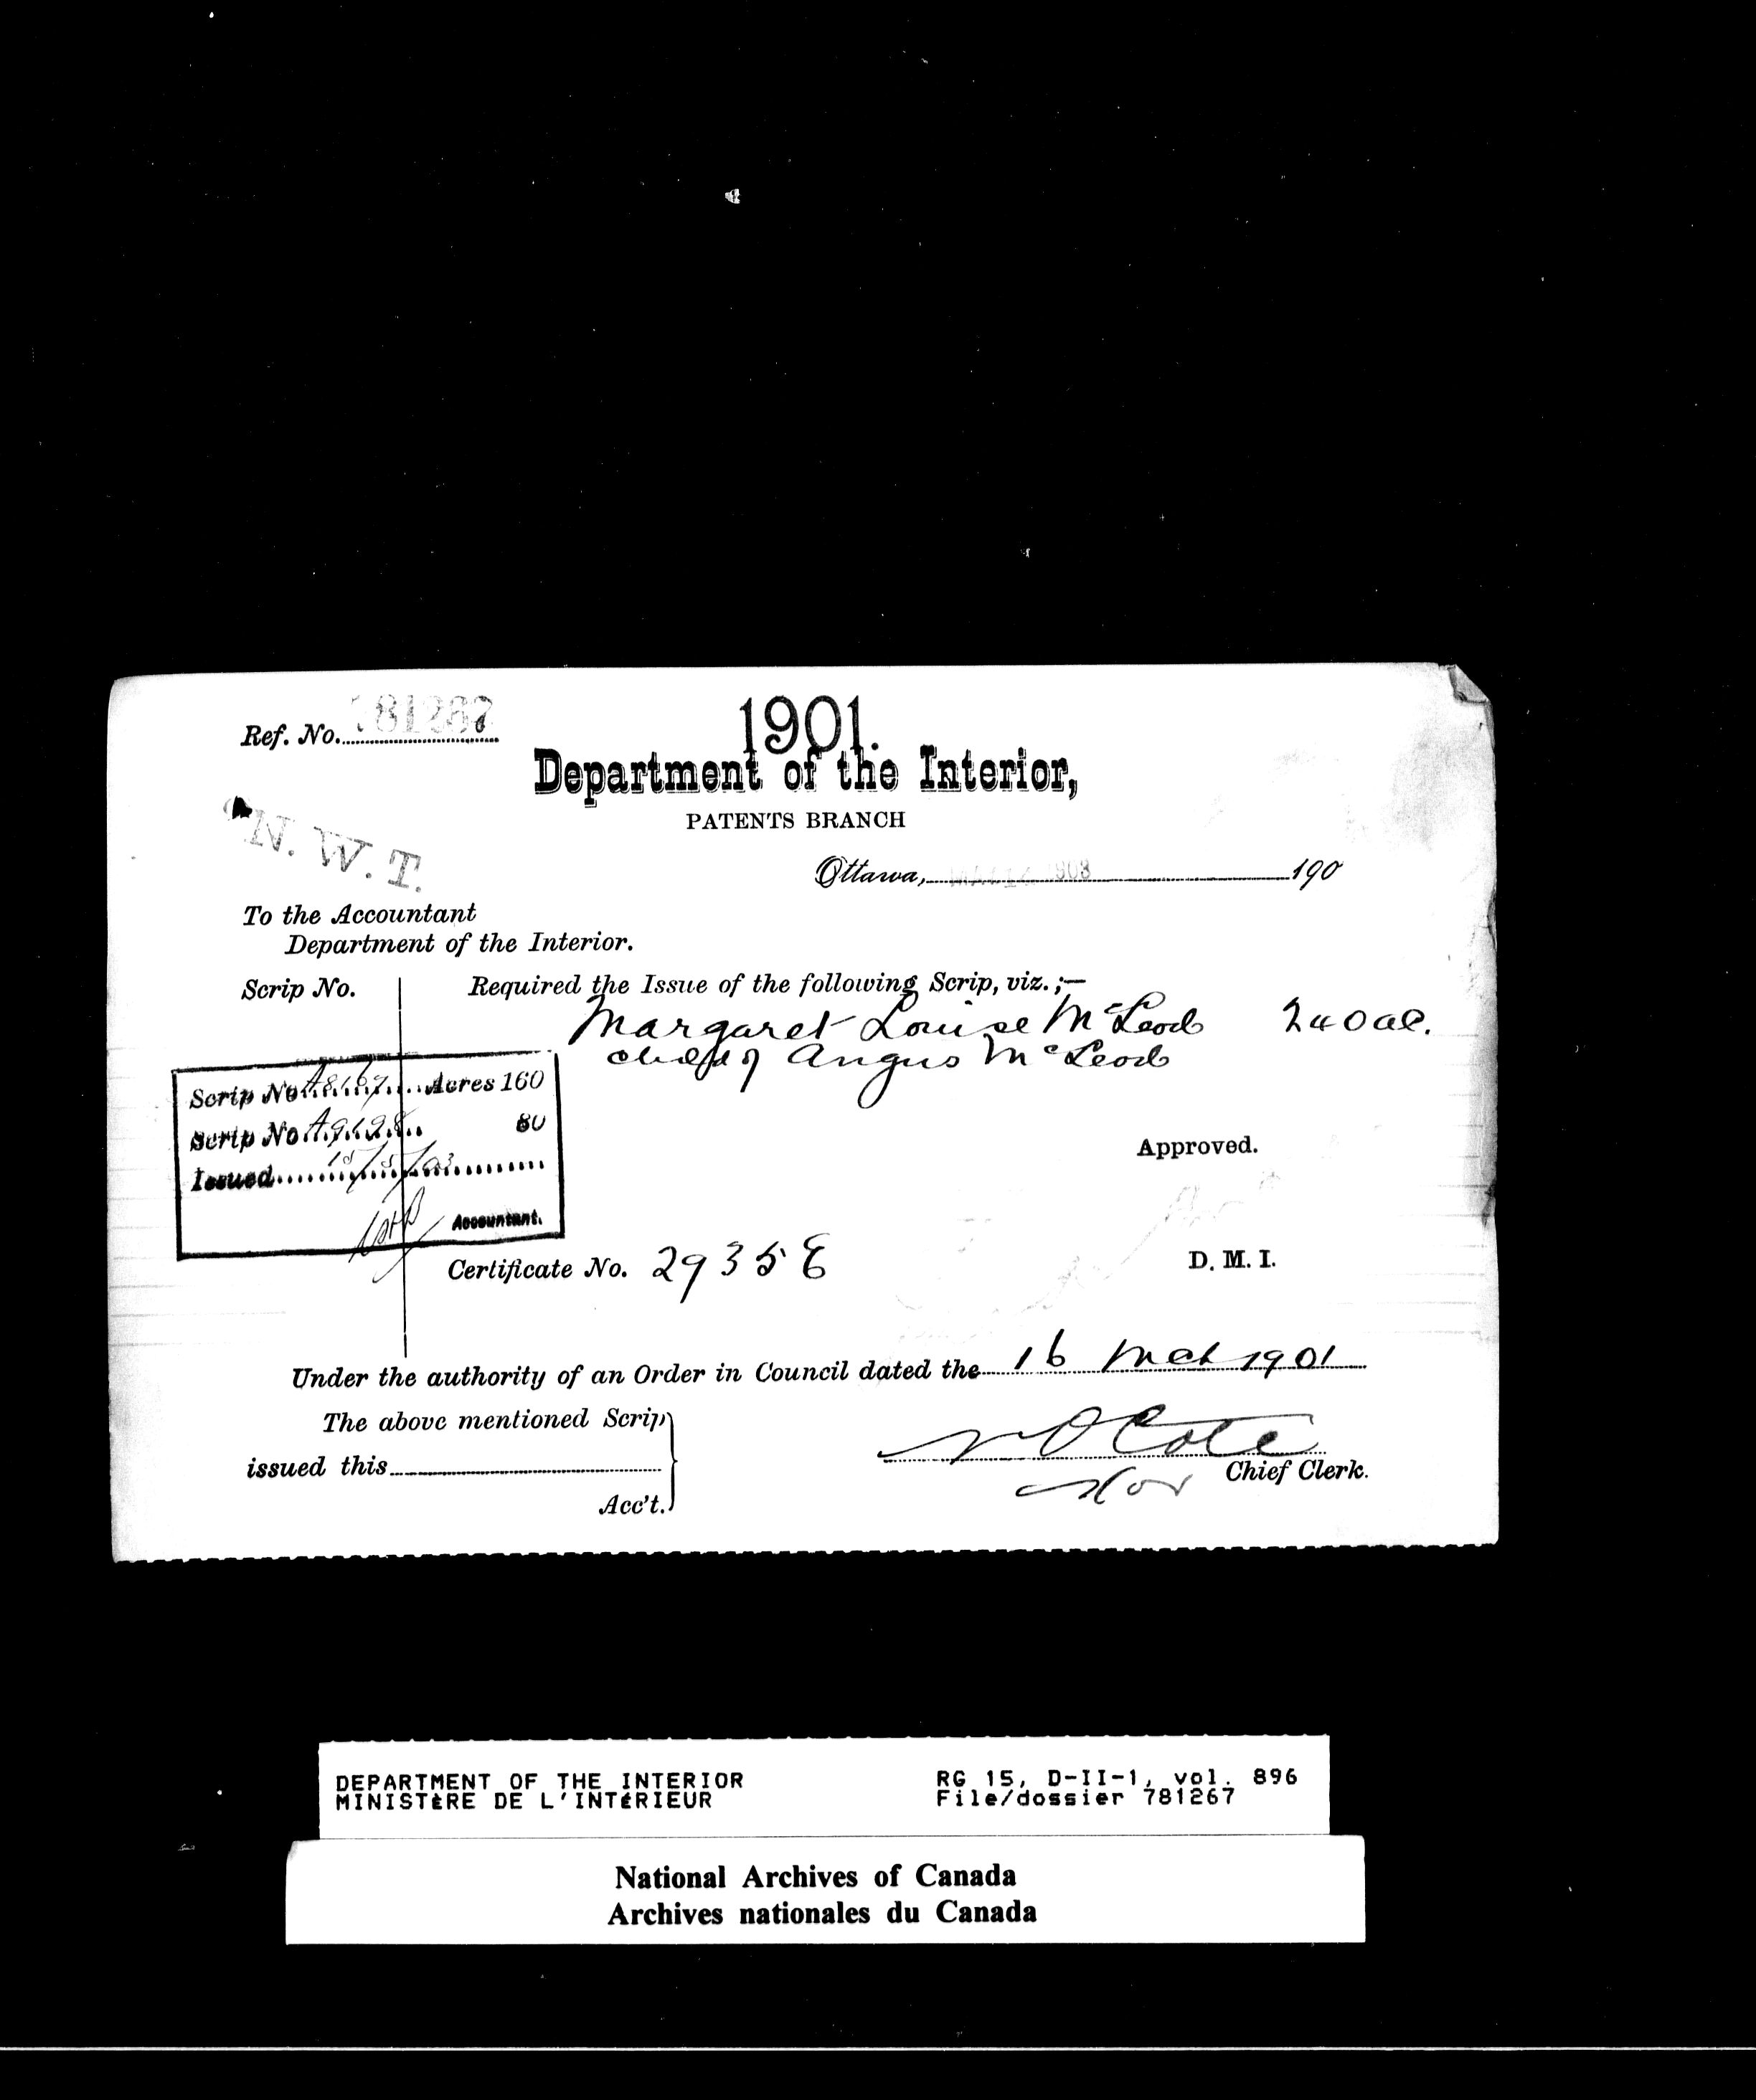 Ref. No. 781267
1901.
Department of the Interior,
PATENTS BRANCH
N. W. T.
Ottawa, 1903 190
To the Accountant
Department of the Interior.
Scrip No.
Required the Issue of the following Scrip, viz. ;—
Margaret Louise McLeod 240 ac.
child of Angus McLeod
Scrip No. A8167 Acres 160
Scrip No. A9698 80
Issued 18/5/03
Accountant.
Approved.
Certificate No. 2935 E
D. M. I.
Under the authority of an Order in Council dated the 16 Mch 1901
The above mentioned Scrip
issued this
Acc't.
N O Cote
Chief Clerk.
DEPARTMENT OF THE INTERIOR
MINISTÈRE DE L'INTÉRIEUR
RG 15, D-II-1, vol. 896
File/dossier 781267
National Archives of Canada
Archives nationales du Canada